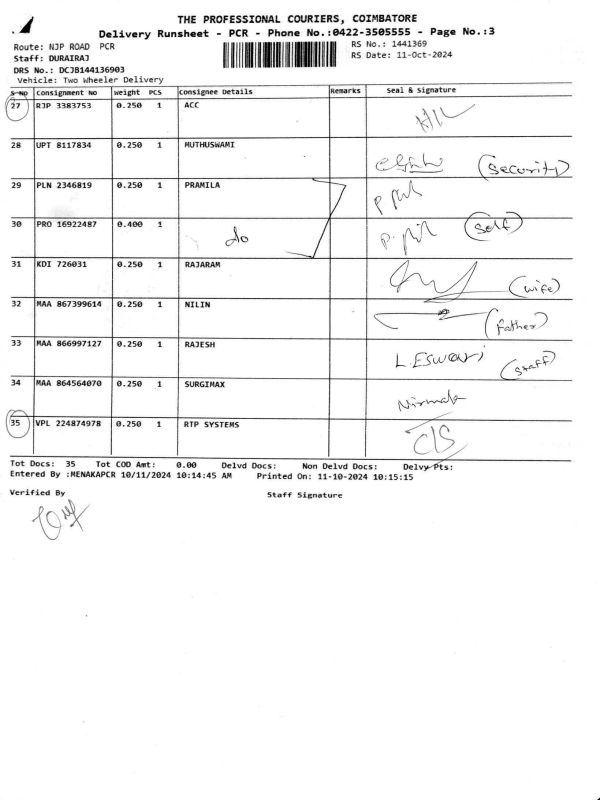 THE PROFESSIONAL COURIERS, COIMBATORE
Delivery Runsheet - PCR - Phone No.:0422-3505555 - Page No.:3
Route: NJP ROAD PCR
RS No.: 1441369
Staff: DURAIRAJ
RS Date: 11-Oct-2024
DRS No.: DCJB144136903
Vehicle: Two Wheeler Delivery
S No Consignment No Weight PCS Consignee Details Remarks Seal & Signature
27 RJP 3383753 0.250 1 ACC
28 UPT 8117834 0.250 1 MUTHUSWAMI
(Security)
29 PLN 2346819 0.250 1 PRAMILA
30 PRO 16922487 0.400 1 do (Self)
31 KDI 726031 0.250 1 RAJARAM
(wife)
32 MAA 867399614 0.250 1 NILIN
(Father)
33 MAA 866997127 0.250 1 RAJESH L.Eswari (Staff)
34 MAA 864564070 0.250 1 SURGIMAX
35 VPL 224874978 0.250 1 RTP SYSTEMS
Tot Docs: 35 Tot COD Amt: 0.00 Delvd Docs: Non Delvd Docs: Delvy Pts:
Entered By :MENAKAPCR 10/11/2024 10:14:45 AM Printed On: 11-10-2024 10:15:15
Verified By Staff Signature